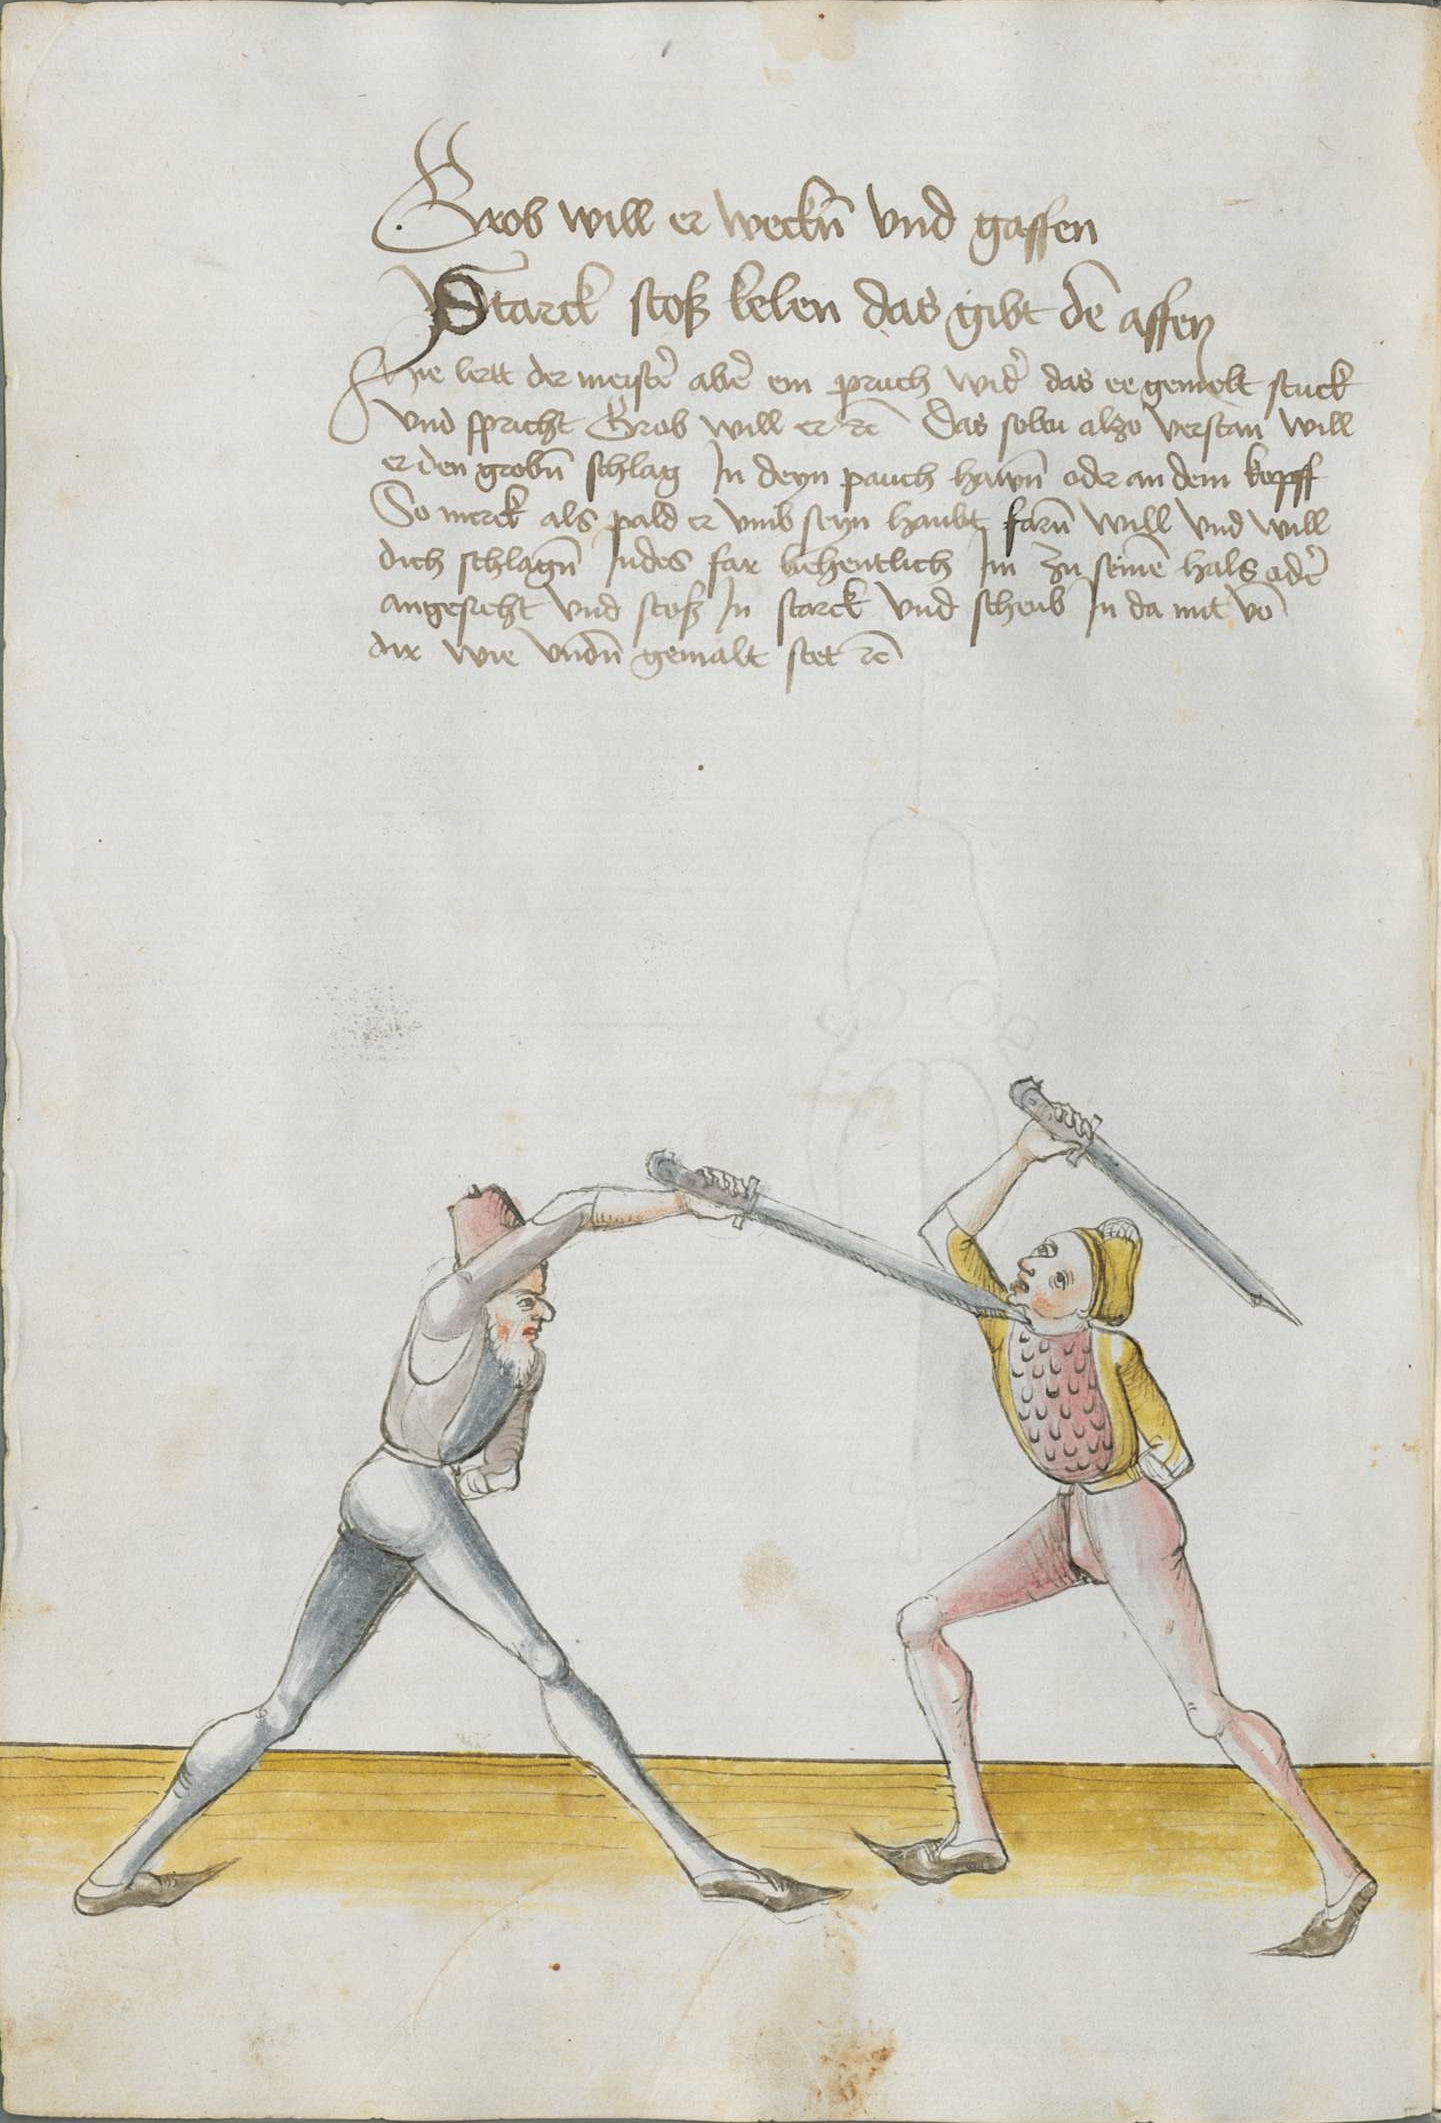 Grob will er weckn̄ vnd gaffen
Starck stoß kelen das gibt dē affen
Hie lertt der meist̄ abē ein pruch wid̄ das ee gemelt stuck
vnd spricht Grob will er ꝛc̄ Das soltu alzo verstan will
er den grobn̄ schlag In deyn pauch hawn̄ oder an dem kopff
So merck als pald er vmb seyn haubt farn̄ will vnd will
dich schlagn̄ Indes far behentlich Im zu seinē hals od̄
angesicht vnd stoß In starck vnd scheub In da mit vō
dir wie vndn̄ gemalt stet ꝛc̄